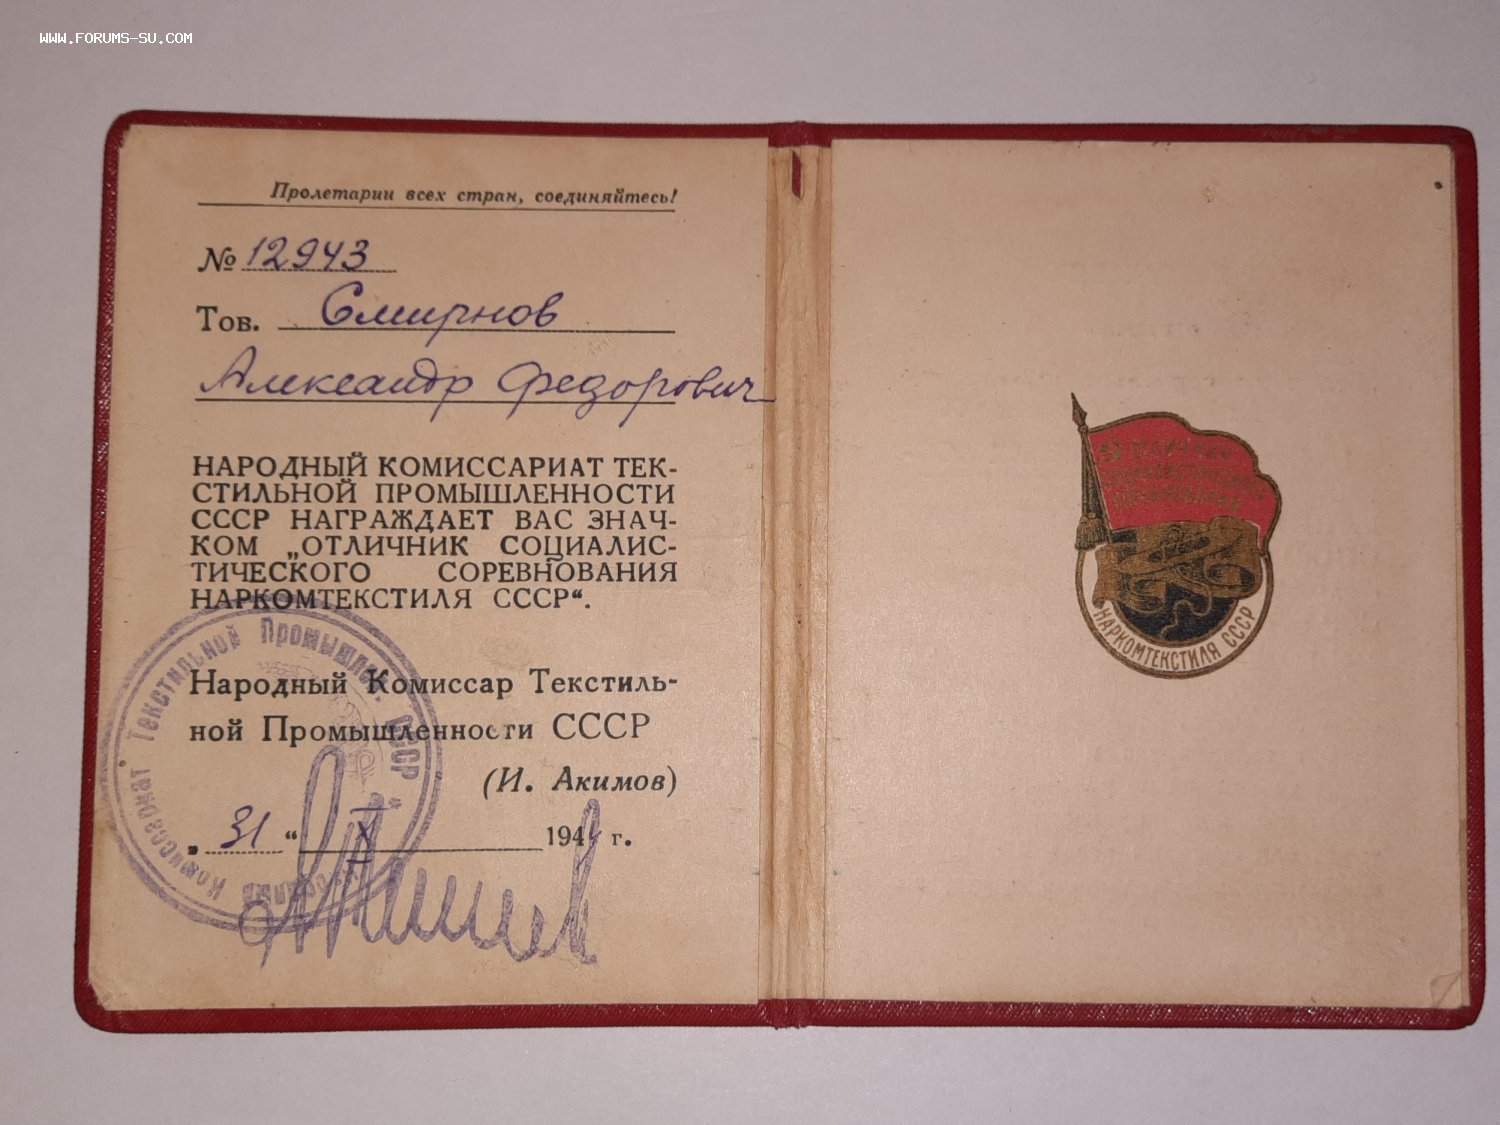 WWW.FORUMS-SU.COM
Пролетарии всех стран, соединяйтесь!
№ 12943
Тов. Смирнов
Александр Федорович
НАРОДНЫЙ КОМИССАРИАТ ТЕК-
СТИЛЬНОЙ ПРОМЫШЛЕННОСТИ
СССР НАГРАЖДАЕТ ВАС ЗНАЧ-
КОМ „ОТЛИЧНИК СОЦИАЛИС-
ТИЧЕСКОГО СОРЕВНОВАНИЯ
НАРКОМТЕКСТИЛЯ СССР“.
Народный Комиссар Текстиль-
ной Промышленности СССР
(И. Акимов)
„31“ X 1944 г.
Комиссариат Текстильной Промышлен. СССР *
ОТЛИЧНИК
СОЦИАЛИСТИЧЕСКОГО
СОРЕВНОВАНИЯ
НАРКОМТЕКСТИЛЯ СССР